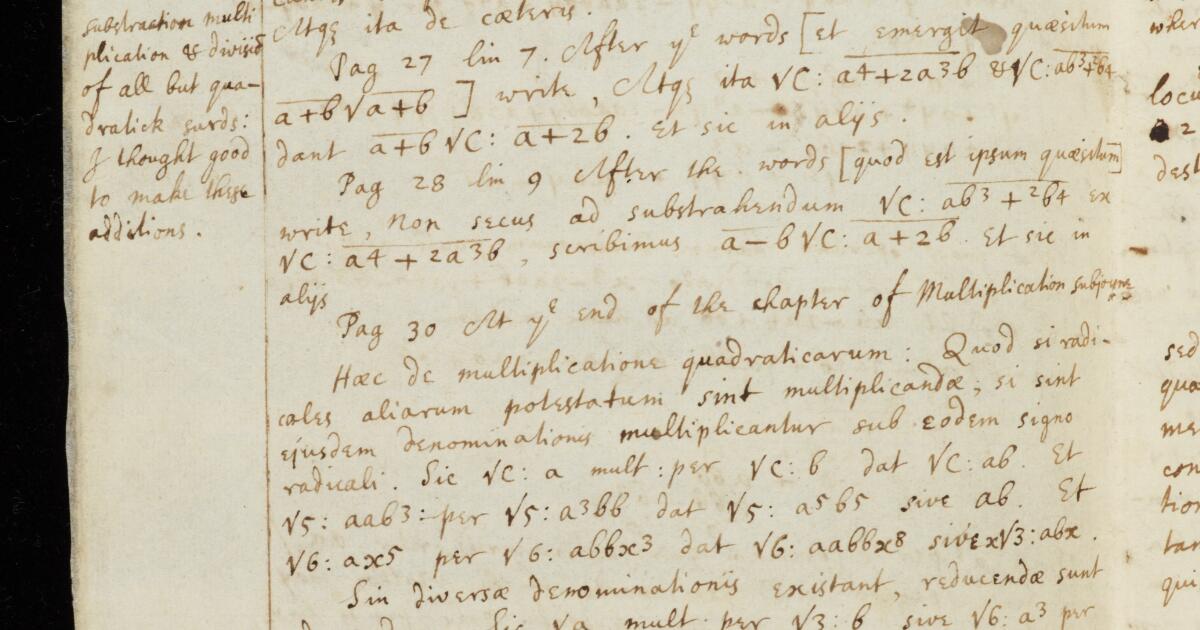 substraction multi
plication & divisiō
of all but qua-
dratick surds:
I thought good
to make these
additions.
Atqꝫ ita de cæteris.
Pag 27 lin 7. After yᵉ words [et emergit quæsitum
a+b√a+b ] write, Atqꝫ ita √C: a4+2a3b & √C: ab3+2b4
dant a+b √C: a+2b. Et sic in alijs.
Pag 28 lin 9 After the words [quod est ipsum quæsitum]
write, Non secus ad substrahendum √C: ab3 + 2b4 ex
√C: a4 + 2a3b, scribimus a-b √C: a+2b. Et sic in
alijs
Pag 30 At yᵉ end of the chapter of Multiplication subjoyne
Hæc de multiplicatione quadraticarum: Quod si radi-
cales aliarum potestatum sint multiplicandæ, si sint
ejusdem denominationis multiplicantur sub eodem signo
radicali. Sic √C: a mult: per √C: b dat √C: ab. Et
√5: aab3: per √5: a3bb dat √5: a5b5 sive ab. Et
√6: ax5 per √6: abbx3 dat √6: aabbx8 sive x√3: abx.
Sin diversæ denominationis existant, reducendæ sunt
Sic √a mult. per √3: b sive √6: a3 per
wher
locu
2
dest
sed
qua
me
con
tion
tar
qui